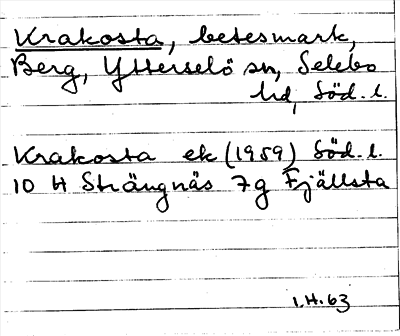 Krakosta, betesmark,
Berg, Ytterselö sn, Selebo
hd, Söd. l.
Krakosta ek (1959) Söd. l.
10 H Strängnäs 7g Fjällsta
1.H.63